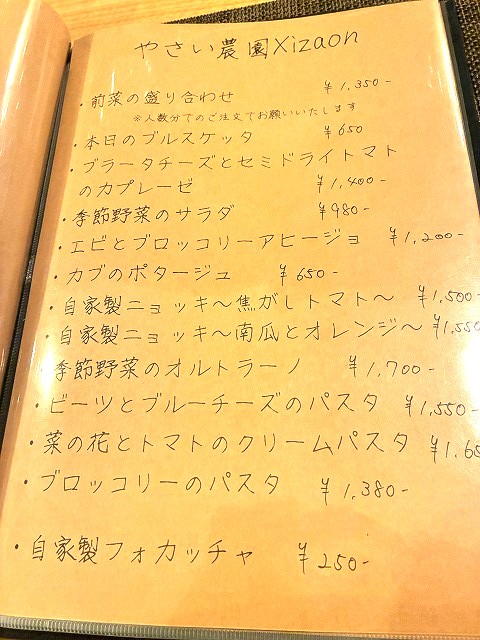 やさい農園Xizaon
・前菜の盛り合わせ ¥1,350-
※人数分でのご注文でお願いいたします
・本日のブルスケッタ ¥650
・ブラータチーズとセミドライトマト
のカプレーゼ ¥1,400-
・季節野菜のサラダ ¥980-
・エビとブロッコリーアヒージョ ¥1,200-
・カブのポタージュ ¥650-
・自家製ニョッキ〜焦がしトマト〜 ¥1,500-
・自家製ニョッキ〜南瓜とオレンジ〜 ¥1,550
・季節野菜のオルトラーノ ¥1,700-
・ビーツとブルーチーズのパスタ ¥1,550-
・菜の花とトマトのクリームパスタ
・ブロッコリーのパスタ ¥1,380-
・自家製フォカッチャ ¥250-